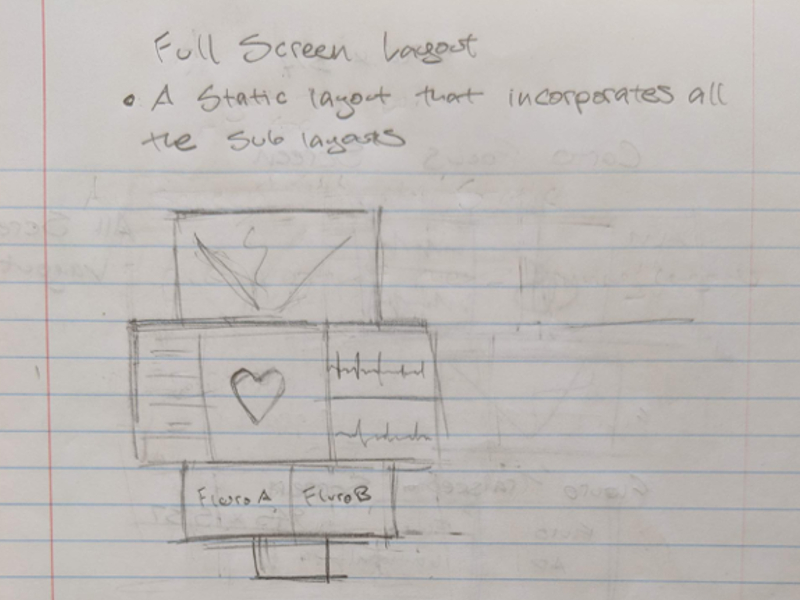 Full Screen Layout
• A Static layout that incorporates all
the Sub layouts
Fluoro A FluroB